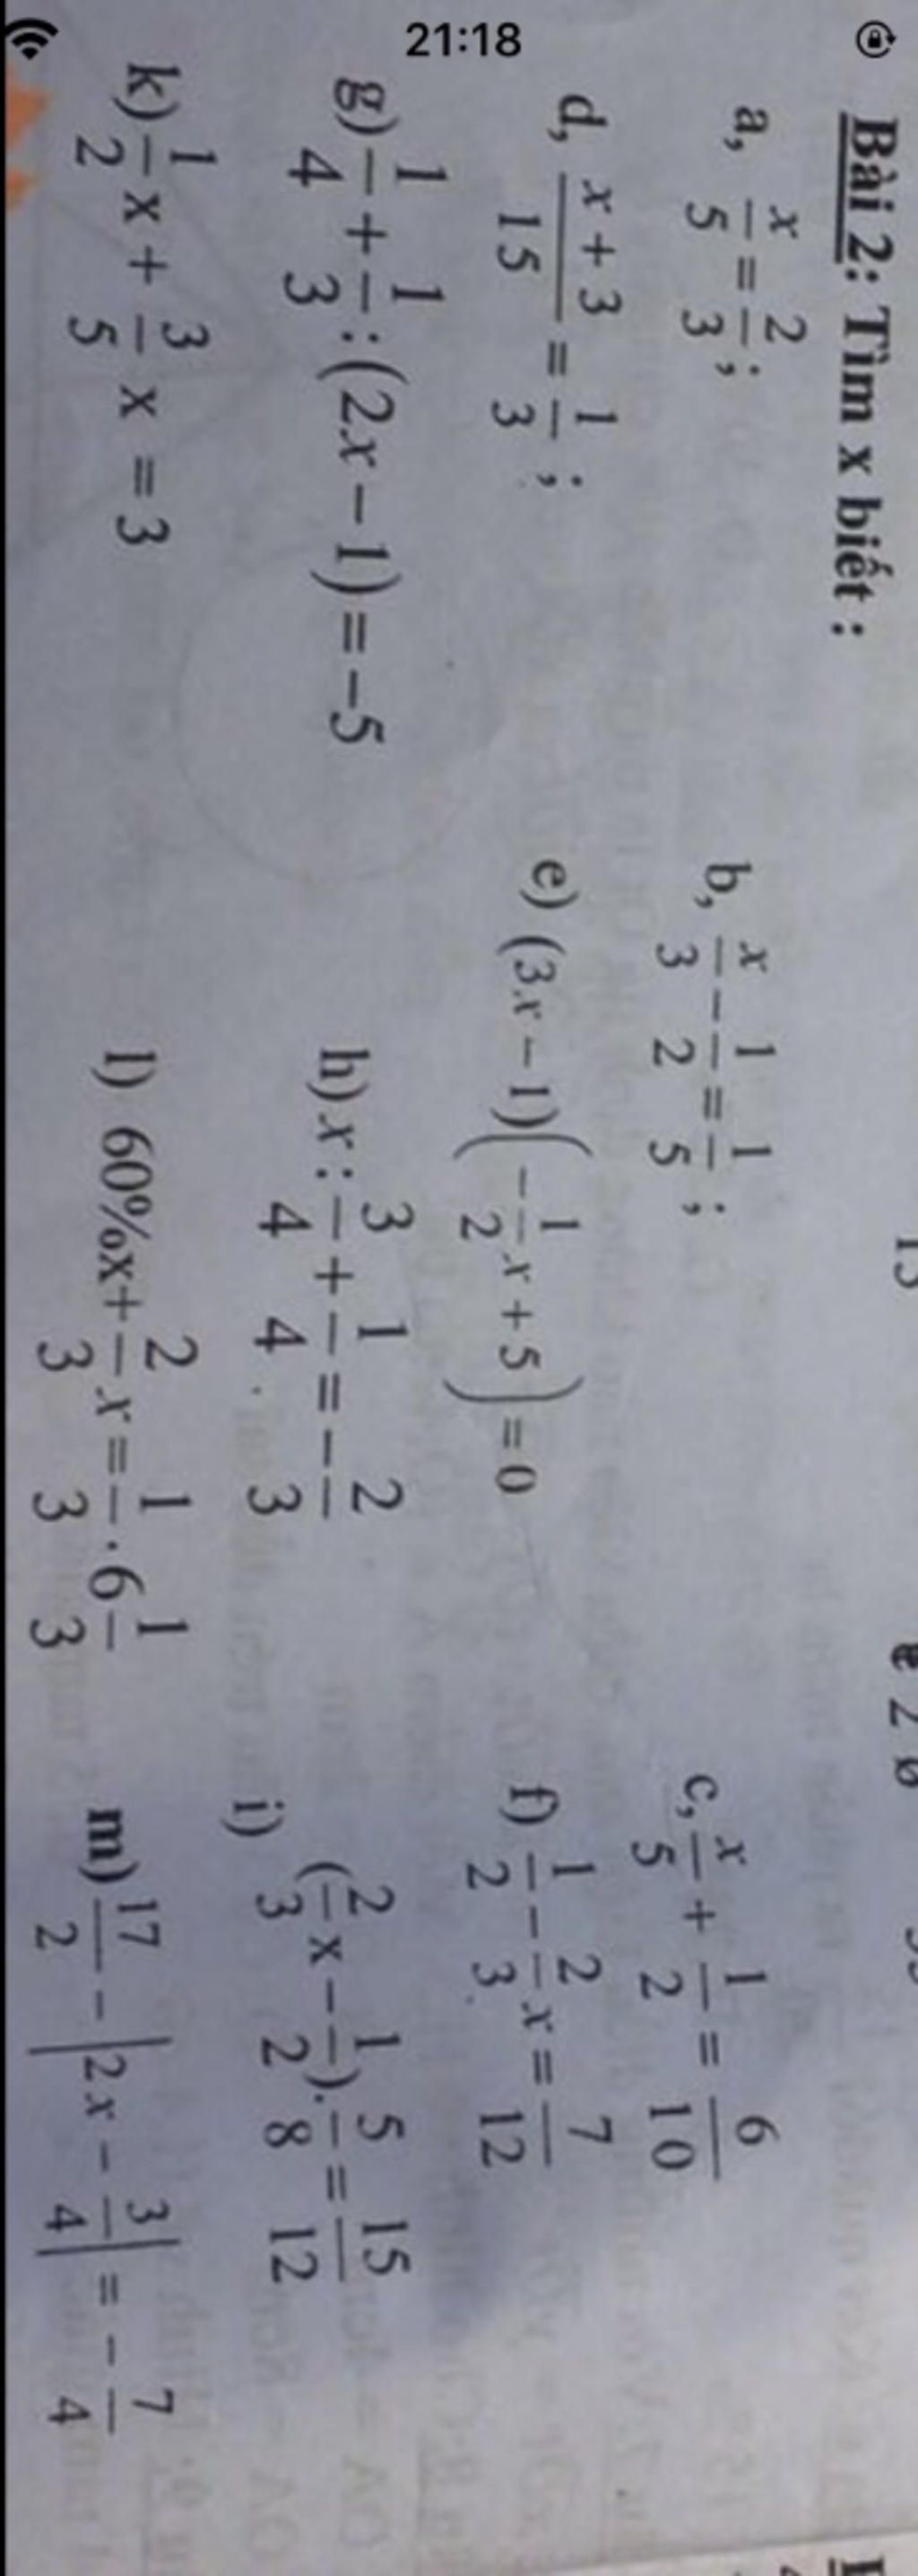 21:18
Bài 2: Tìm x biết :
a, x/5 = 2/3; b, x/3 - 1/2 = 1/5; c, x/5 + 1/2 = 6/10
d, (x + 3)/15 = 1/3; e) (3x - 1)(-1/2 x + 5) = 0 f) 1/2 - 2/3 x = 7/12
g) 1/4 + 1/3 : (2x - 1) = -5 h) x : 3/4 + 1/4 = -2/3 i) (2/3 x - 1/2). 5/8 = 15/12
k) 1/2 x + 3/5 x = 3 l) 60%x + 2/3 x = 1/3 . 6 1/3 m) 17/2 - |2x - 3/4| = -7/4